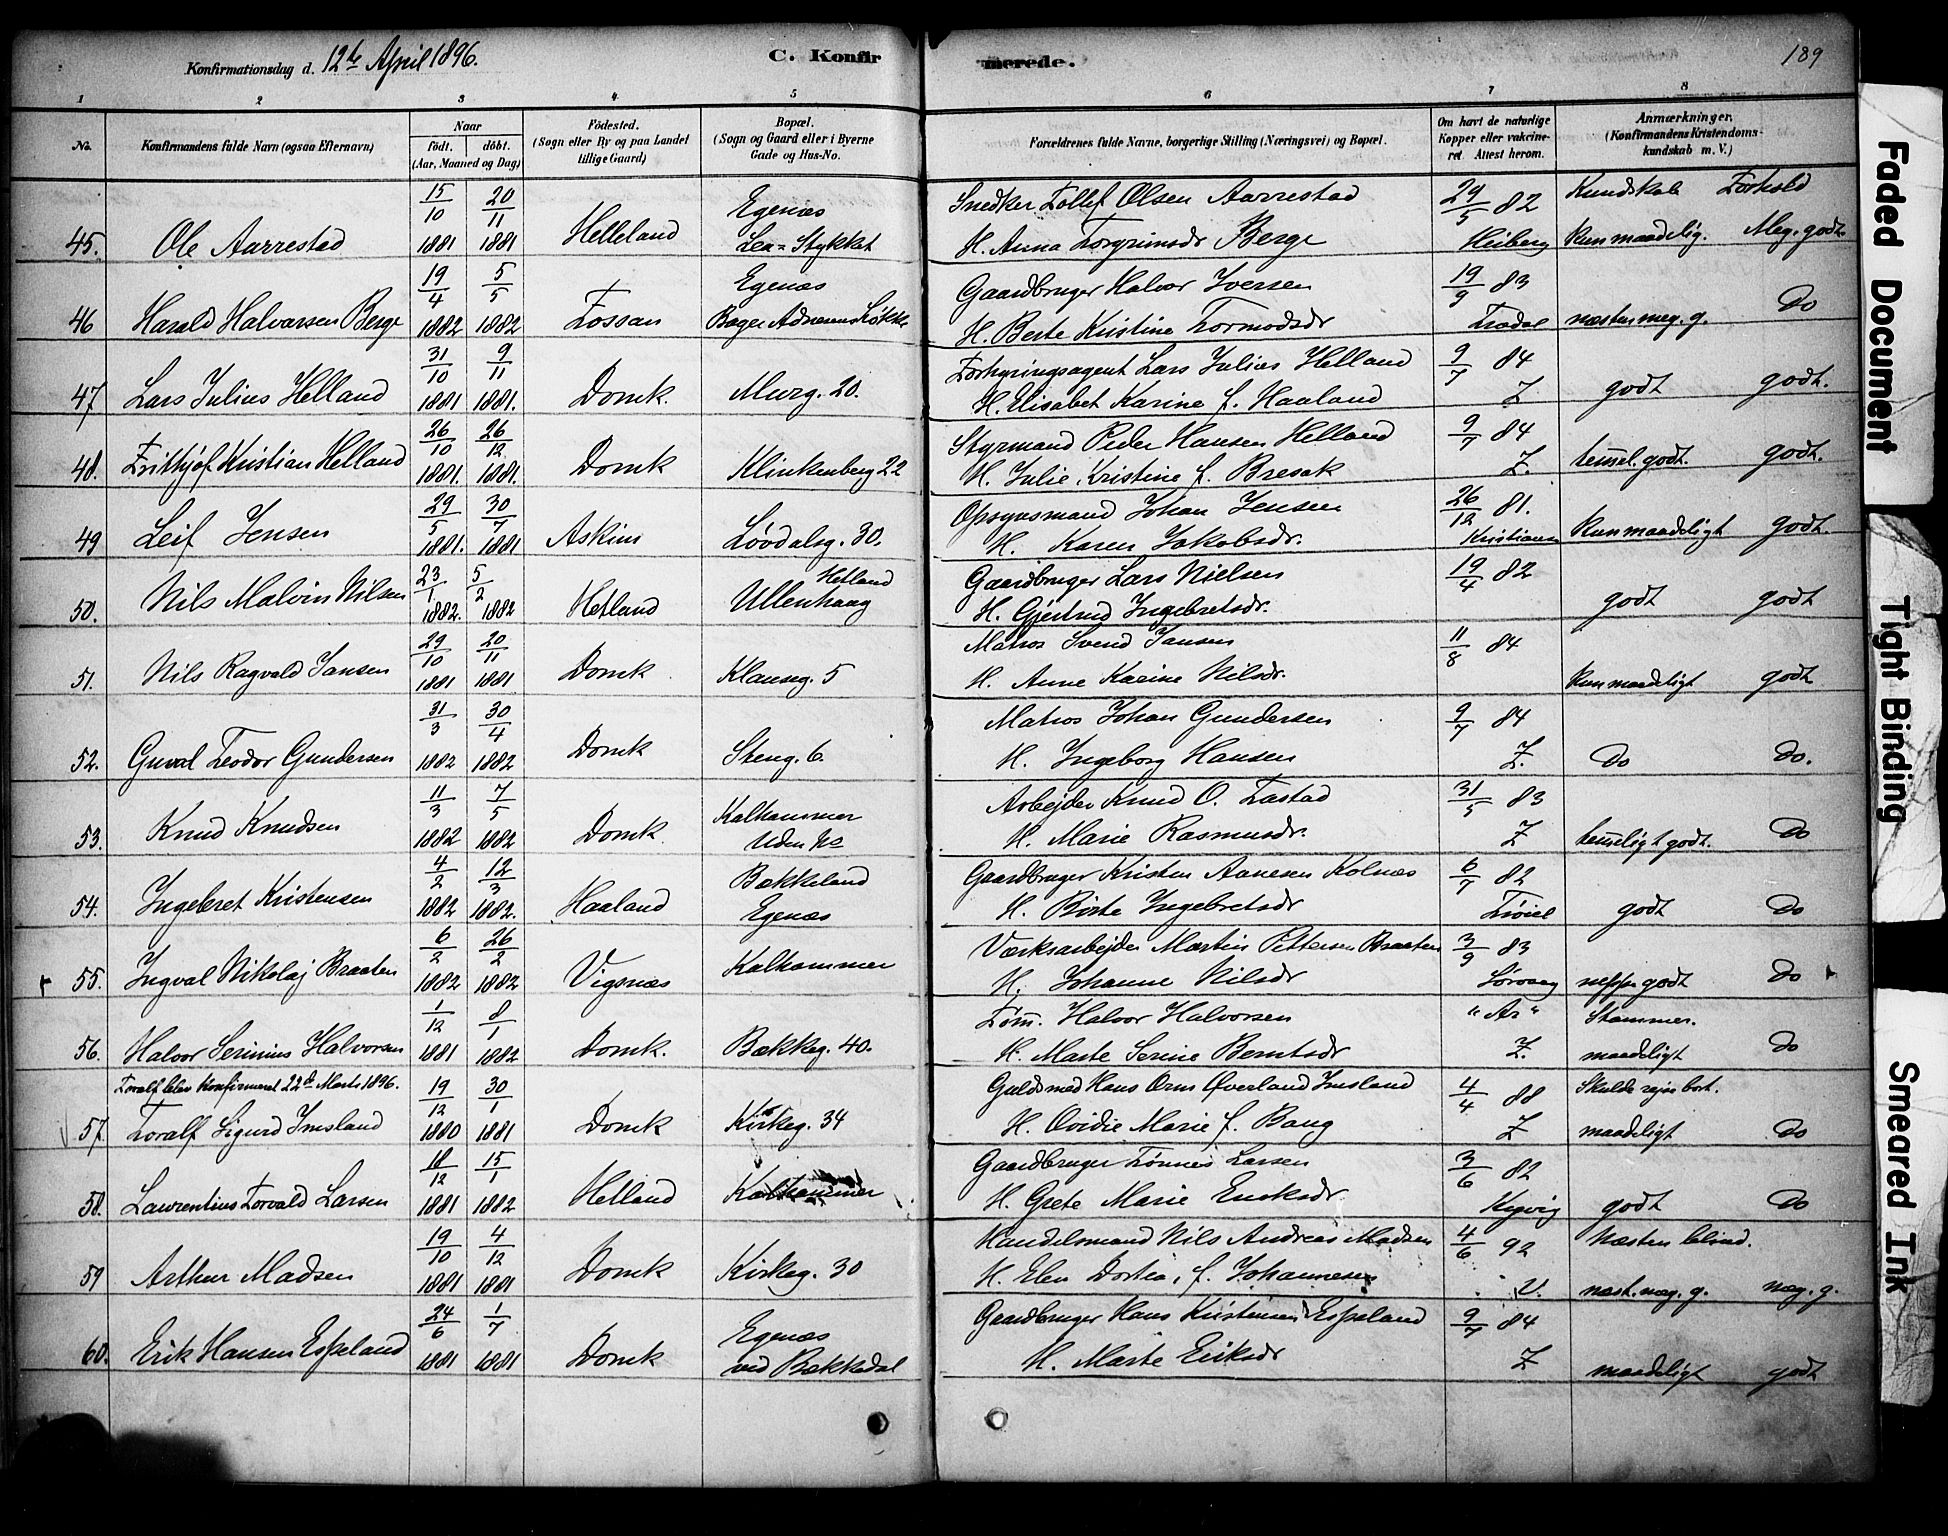 Konfirmationsdag d. 12te April 1896.
C. Konfirmerede.
189
1 2 3 4 5 6 7 8
No. Konfirmandens fulde Navn (ogsaa Efternavn) Naar født. døbt. (Aar, Maaned og Dag) Fødested. (Sogn eller By og paa Landet tillige Gaard) Bopæl. (Sogn og Gaard eller i Byerne Gade og Hus-No. Forældrenes fulde Navne, borgerlige Stilling (Næringsvei) og Bopæl. Om havt de naturlige Kopper eller vakcineret Attest herom. Anmærkninger. (Konfirmandens Kristendomskundskab m. V.)
15/10 20/11 Egenæs Snedker Tollef Olsen Aarrestad 29/5 82 Kundskab Forhold
45. Ole Aarrestad 1881 1881 Helleland Lea-Stykket H. Anna Torgrimsdr Berge Heiberg kun maadelig. Meg. godt.
19/4 5/5 Egenæs Gaardbruger Halvor Iversen 19/9 83
46 Harald Halvarsen Berge 1882 1882 Fossan Bager H. Berte Kristine Tormodsdr næsten meg. g. Do
31/10 9/11 Forhyringsagent Lars Julius Helland 9/7 84
47 Lars Julius Helland 1881 1881. Domk Murg. 20. H. Elisabet Karine f. Haaland Z godt godt.
26/10 26/12 Styrmand Peder Hansen Helland 9/7 84
48. Frithjof Kristian Helland 1881. 1881. Domk Klinkenberg 22 H. Julie Kristine f. Bresak Z. temmel. godt. godt.
29/5 30/7 Opsynsmand Johan Jensen 26/12 81.
49 Leif Jensen 1881. 1881 Askim Løvdalsg. 30. H. Karen Jakobsdr. kun maadeligt godt.
23/1 5/2 Hetland Gaardbruger Lars Nielsen 19/4 82
50. Nils Malvin Nilsen 1882. 1882 Hetland Ullenhaag H. Gjertrud Ingebretsdr. godt godt
29/10 20/11 Matros Svend Jansen 11/8 84
51. Nils Ragvald Jansen 1881 1881 Domk Klausg. 5 H. Anne Karine Nilsdr. kun maadeligt godt
31/3 30/4 Matros Johan Gundersen 9/7 84
52. Guval Teodor Gundersen 1882 1882 Domk Steng. 6. H. Ingeborg Hansen Z. Do Do.
11/3 7/5 Kalhammer Arbejder Knud O. Tastad 31/5 83
53. Knud Knudsen 1882 1882 Domk. Uden No H. Marie Rasmusdr. Z temmeligt godt. Do
4/2 12/3 Bækkeland Gaardbruger Kristen Aanesen Kolnæs 6/7 82
54. Ingebret Kristensen 1882 1882. Haaland Egenæs H. Birte Ingebretsdr godt Do
6/2 26/2 Værksarbejder Martin Pettersen Braaten 3/9 83
55. Ingval Nikolaj Braaten 1882 1882 Vigsnæs Kalhammer H. Johanne Nilsdr neppe godt Do
1/12 8/1 Tøm. Halvor Halvorsen "Ar" Stammer.
56. Halvor Serinius Halvorsen 1881 1882 Domk. Bækkeg. 40. H. Marte Serine Berntsdr Z. maadeligt Do
Toralf blev konfirmeret 22de Marts 1896. 19/12 30/1 Guldsmed Hans Orm Øverland Imsland 4/4 88 Skulde rejse bort.
57. Toralf Sigurd Imsland 1880 1881 Domk Kirkeg. 34 H. Ovidie Marie f. Baug Z maadeligt Do
18/12 15/1 Gaardbruger Tønnes Larsen 3/6 82
58. Laurentius Torvald Larsen 1881 1882 Hetland Kalhammer H. Grete Marie Eriksdr. godt Do
19/10 4/12 Handelsmand Nils Andreas Madsen 4/6 92 Næsten blind.
59 Arthur Madsen 1881 1881 Domk Kirkeg. 30 H. Elen Dortea, f. Johannesen V. næst. meg. g. meg. g.
24/6 1/7 Egenæs Gaardbruger Hans Kristensen Espeland 9/7 84
60. Erik Hansen Espeland 1881 1881 Domk ved Bækkedal H. Marte Eriksdr Z maadeligt godt
Faded Document
Tight Binding
Smeared Ink